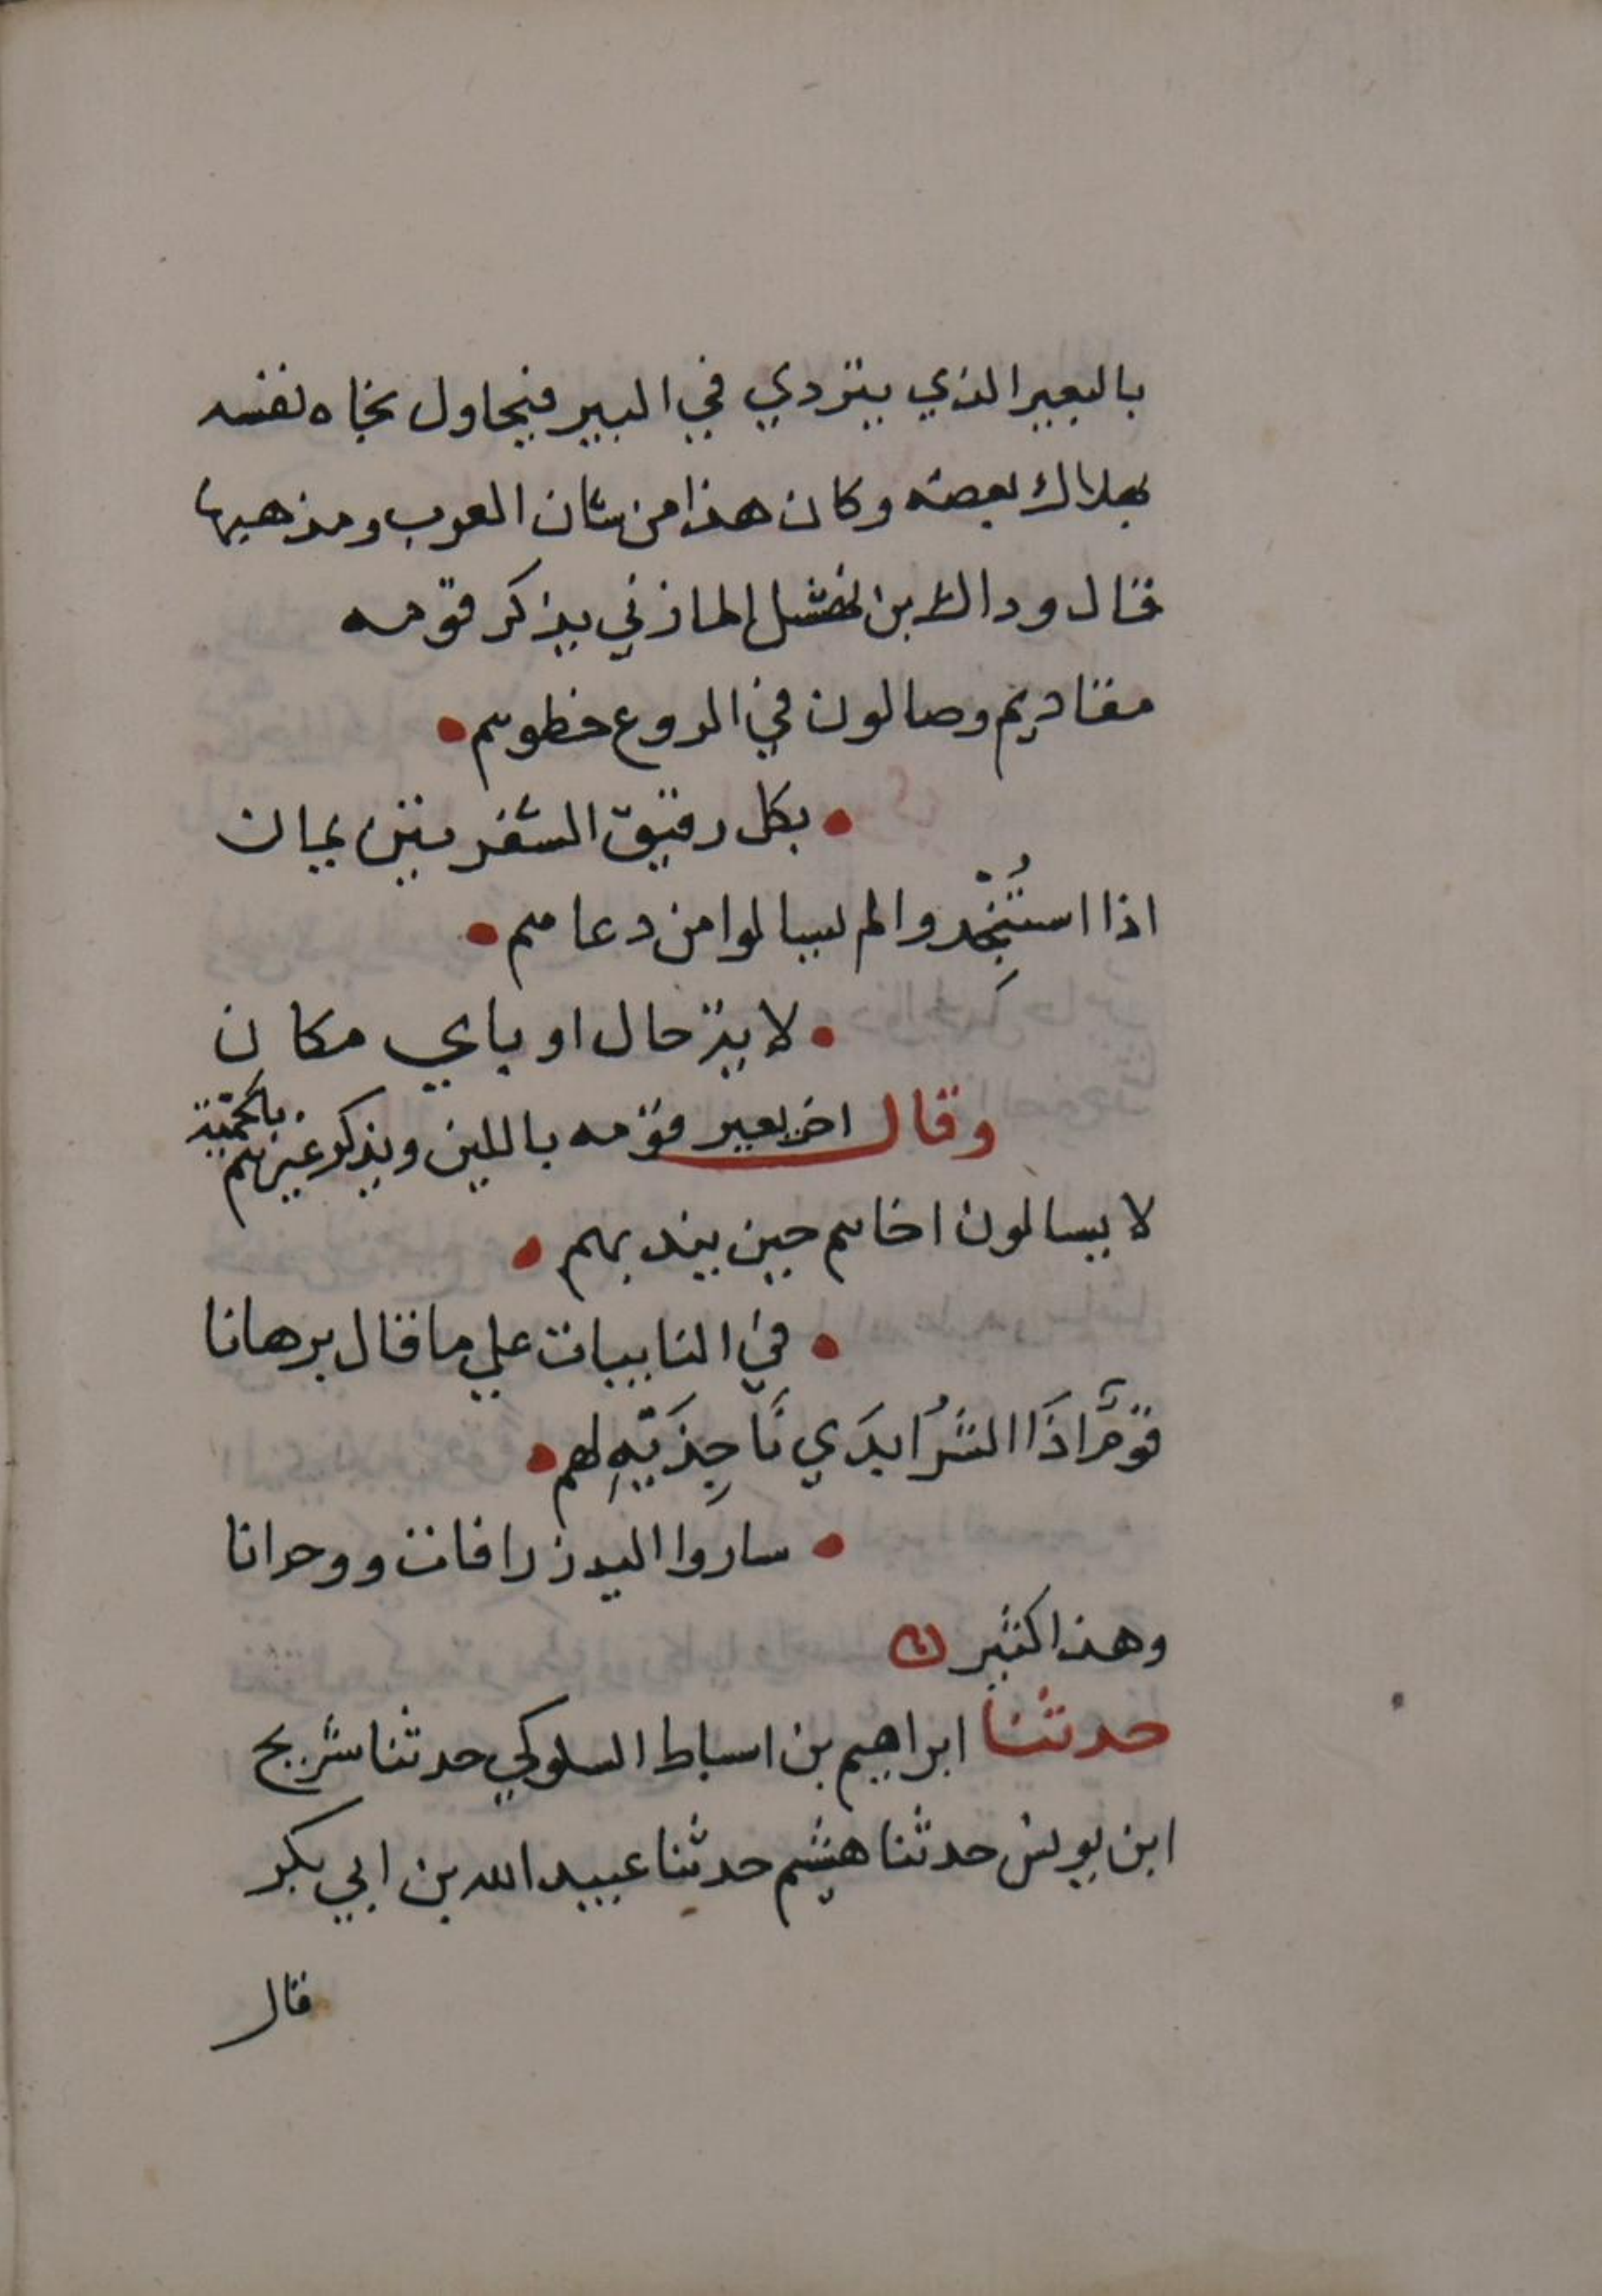 بالبعير الذي يتردي في البير فيحاول نجاه نفسه
بهلاك بعضه وكان هذا من شان العرب ومذهبها
قال وداك بن نهشل المازني يذكر قومه
مقاديم وصالون في الروع خطوهم •
• بكل رقيق الشفرتين يمان
اذا استُنّجِدوا لم يسالوا من دعاهم •
• لاية حال او باي مكان
وقال اخر يعير قومه باللين ويذكر غيرهم بالحمية
لا يسالون اخاهم حين يندبهم •
• في النايبات علي ما قال برهانا
قومٌ اذَا الشرُّ ابدَي نَاجِذَيْهِ لهم •
• ساروا اليه زرافات ووحدانا
وهذا كثير ن
حدثنا ابراهيم بن اسباط السلوكي حدثنا شريح
ابن يونس حدثنا هشيم حدثنا عبيد الله بن ابي بكر
قال